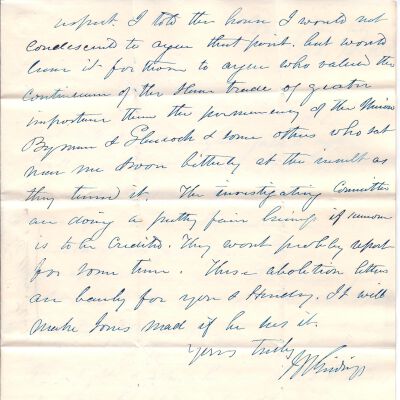 respect. I told the house I would not
condescend to argue that point, but would
leave it for those to argue who valued the
continuence of the slave trade of greater
importance than the permanency of the Union
Bynum & Glascock & some others who sat
near me swore bitterly at the insult as
they termed it. The investigating Committee
are doing a pretty fair business if rumour
is to be credited. They wont probably report
for some time. These abolition letters
are barely for you & Hendry. It will
make Jones mad if he sees it.
Yours truly
J R Giddings